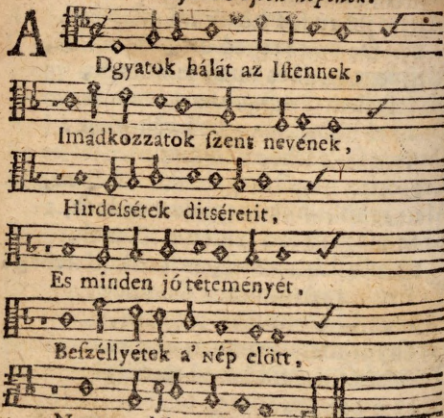 ADgyatok hálát az Iſtennek,
Imádkozzatok ſzent nevének,
Hirdeſsétek ditséretit,
Es minden jó téteményét,
Beſzéllyétek a' Nép elött,